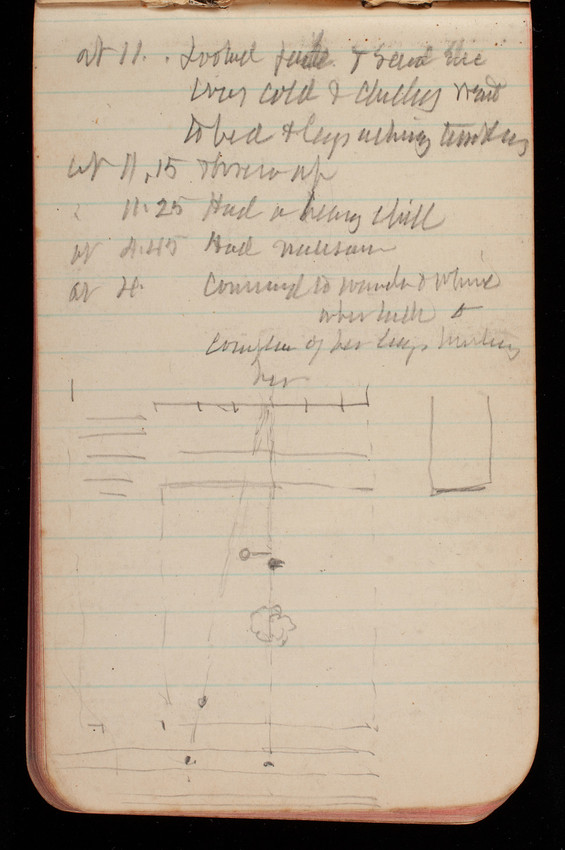 at 11. Looked pale & said she
was cold & chilly went
to bed & legs aching terribly
at 11.15 threw up
11.25 Had a heavy chill
at 4.45 Had nausea
at 4. Commenced to wander & whine
to
complain of her legs hurting
her